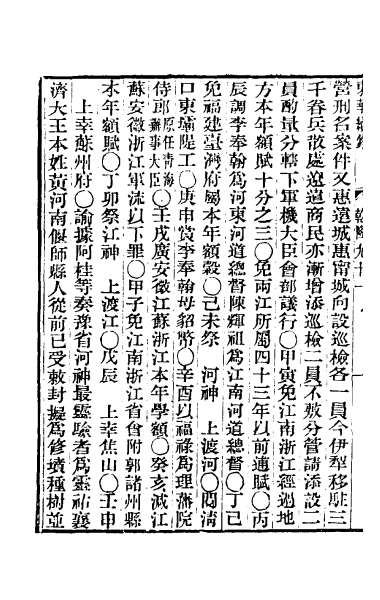 營刑名案件又惠遠城惠甯城向設巡檢各一員今伊犂移駐三
千眷兵散處遼遠商民亦漸增添巡檢二員不敷分管請添設二
員酌量分轄下軍機大臣會部議行○甲寅免江南浙江經過地
方本年額賦十分之三○免兩江所屬四十三年以前逋賦○丙
辰調李奉翰爲河東河道總督陳輝祖爲江南河道總督○丁巳
免福建臺灣府屬本年額穀○己未祭 河神 上渡河○閱淸
口東壩隄工○庚申賞李奉翰母貂幣○辛酉以福祿爲理藩院
侍郎原任靑海辦事大臣○壬戌廣安徽江蘇浙江本年學額○癸亥減江
蘇安徽浙江軍流以下罪○甲子免江南浙江省會附郭諸州縣
本年額賦○丁卯祭江神 上渡江○戊辰 上幸焦山○壬申
上幸蘇州府○諭據阿桂等奏豫省河神最靈驗者爲靈祐襄
濟大王本姓黃河南偃師縣人從前已受敕封擬爲修墳種樹並